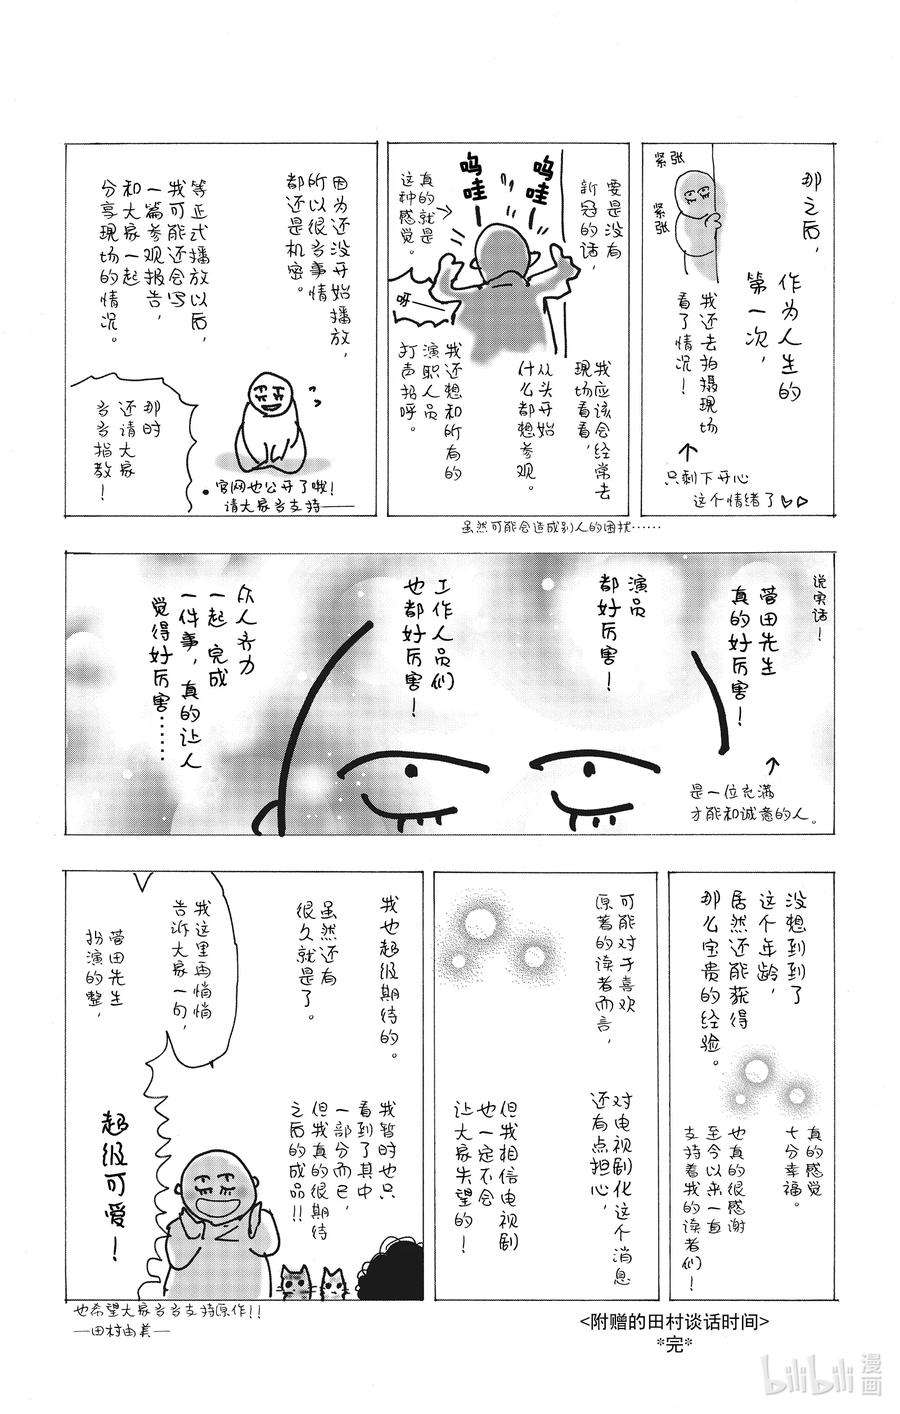 那之后，
作为人生的
第一次，
我还去拍摄现场
看了情况！
紧张
紧张
只剩下开心
这个情绪了♡♡
要是没有
新冠的话，
我应该会经常去
现场看看，
从头开始
什么都想参观。
呜哇—
呜哇—
真的就是
这种感觉。
呀—
我还想和所有的
演职人员
打声招呼。
虽然可能会造成别人的困扰……
因为还没开始播放，
所以很多事情
都还是机密。
等正式播放以后，
我可能还会写
一篇参观报告，
和大家一起
分享现场的情况。
那时
还请大家
多多指教！
•官网也公开了哦！
请大家多支持——
说实话！
菅田先生
真的好厉害！
是一位充满
才能和诚意的人。
演员
都好厉害！
工作人员们
也都好厉害！
众人齐力
一起完成
一件事，真的让人
觉得好厉害……
没想到到了
这个年龄，
居然还能获得
那么宝贵的经验。
真的感觉
十分幸福。
也真的很感谢
至今以来一直
支持着我的读者们！
可能对于喜欢
原著的读者而言，
对电视剧化这个消息
还有点担心，
但我相信电视剧
也一定不会
让大家失望的！
我也超级期待的。
虽然还有
很久就是了。
我暂时也只
看到了其中
一部分而已，
但我真的很期待
之后的成品！！
我这里再悄悄
告诉大家一句，
菅田先生
扮演的整，
超级可爱！
也希望大家多多支持原作！！
—田村由美—
<附赠的田村谈话时间>
*完*
bilibili 漫画